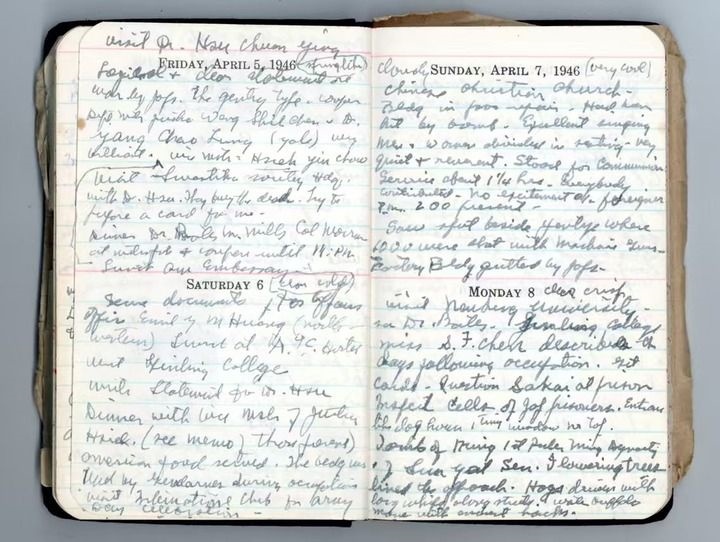 visit Dr. Hsu Chuan Ying
FRIDAY, APRIL 5, 1946
& clear statement re
war by Japs. The gentry type. Confer
Wang Shih Chen & Dr.
Yang Chao Lung (Yale) very
brilliant. Vice Minis. Hsieh
Visit Swastika Society Hdq.
with Dr. Hsu. They bury the dead. Try to
a card for me -
Dinner Dr. Mills Col Morrow
at & confer until 11: P.M.
American Embassy
SATURDAY 6
documents, For Affairs
Office Emily M Huang (North-
western) at
visit Ginling College
with Statement for Dr. Hsu
Dinner with Vice Minis of Justice
Hsieh. (see memo)
American food served. The bldg was
used by Gendarmes during occupation
visit International Club for Army
Day celebration -
cloudy SUNDAY, APRIL 7, 1946 (very cool)
Chinese Christian Church -
Bldg in poor repair. Had been
hit by bomb. Excellent singing
Men & women divided in seating - very
quiet & reverent. Stood for Communion
Service about 1¼ hrs. Everybody
contributed - No excitement at foreigner
200 present
Saw spot beside Yangtze where
were shot with Machine Guns -
Factory Bldg gutted by Japs -
MONDAY 8 clear crisp
visit Nanking University -
see Dr Bates. Ginling College
Miss S. F. Chen described the
days following occupation. Get
cards - Question Sakai at prison
Inspect Cells of Jap prisoners. Entrance
like dog house, tiny window no top.
Tomb of Ming, 1st Ruler Ming Dynasty
& Sun Yat Sen. Flowering trees
lined the approach. Hogs driven with
long whips along streets. Water buffalo
move with ancient